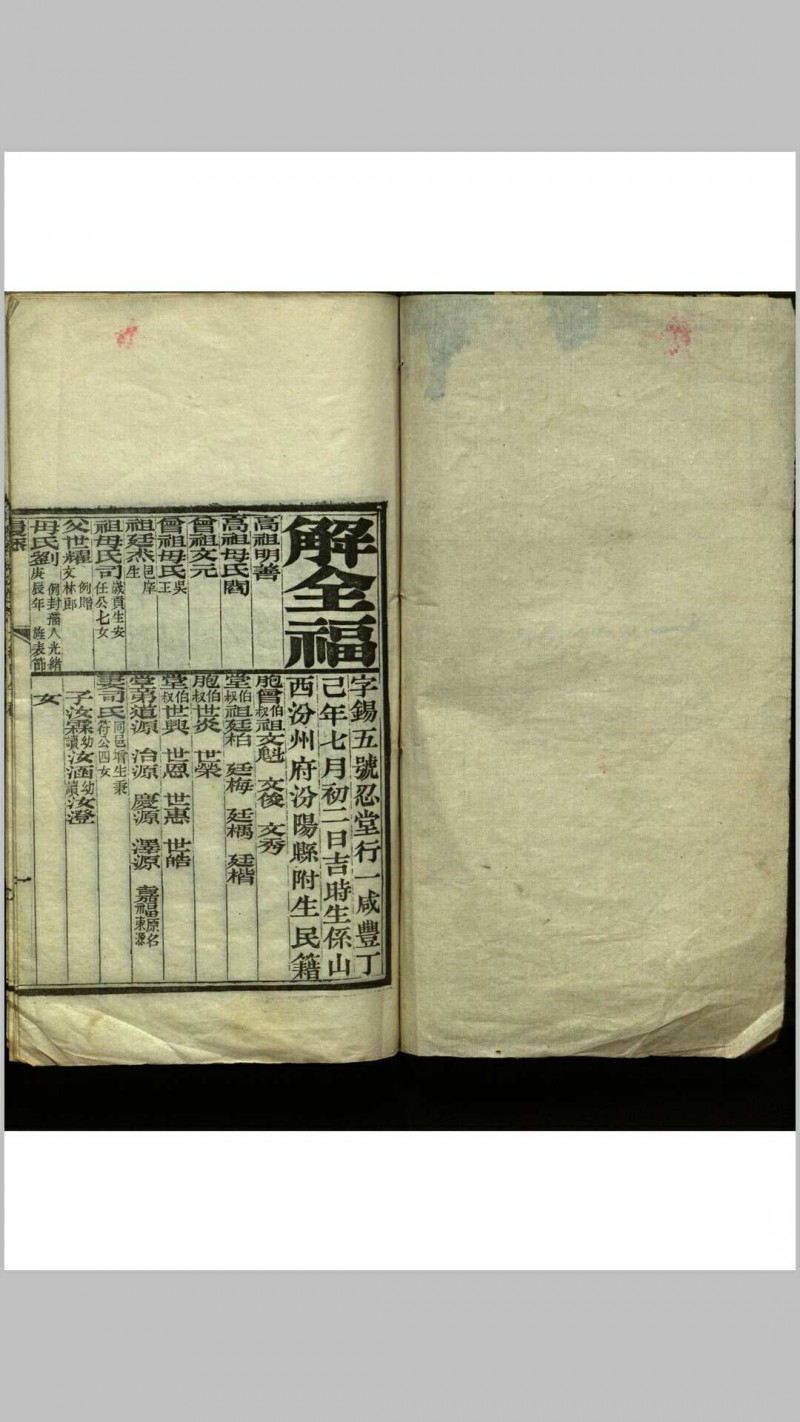 解全福
字錫五號忍堂行一咸豐丁
己年七月初二日吉時生係山
西汾州府汾陽縣附生民籍
高祖明善
高祖母氏閻
曾祖文元
曾祖母氏吳王
祖廷杰邑庠生
祖母氏司歲貢生安任公七女
父世耀例贈文林郎
母氏劉例封孺人光緒庚辰年旌表節
胞曾伯叔祖文魁 文俊 文秀
堂伯叔祖廷柏 廷梅 廷楀 廷楷
胞伯叔世炎 世榮
堂伯叔世興 世恩 世惠 世皓
堂弟道源 治源 慶源 澤源 嘉福原名東源
妻司氏同邑增生秉符公四女
子汝霖幼讀汝涵幼讀汝澄
女